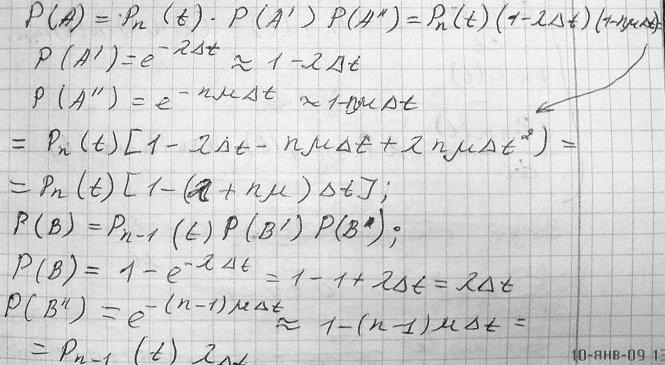 P(A) = P_n (t) · P(A') P(A'') = P_n (t) (1-λΔt) (1-nμΔt)
P(A') = e^{-λΔt} ≈ 1-λΔt
P(A'') = e^{-nμΔt} ≈ 1-nμΔt
= P_n (t) [1 - λΔt - nμΔt + λnμΔt²) =
= P_n (t) [1-(λ+nμ) Δt];
P(B) = P_{n-1} (t) P(B') P(B'');
P(B) = 1 - e^{-λΔt} = 1-1+λΔt = λΔt
P(B'') = e^{-(n-1)μΔt} ≈ 1-(n-1)μΔt =
= P_{n-1} (t) λΔt
10-ЯНВ-09 13